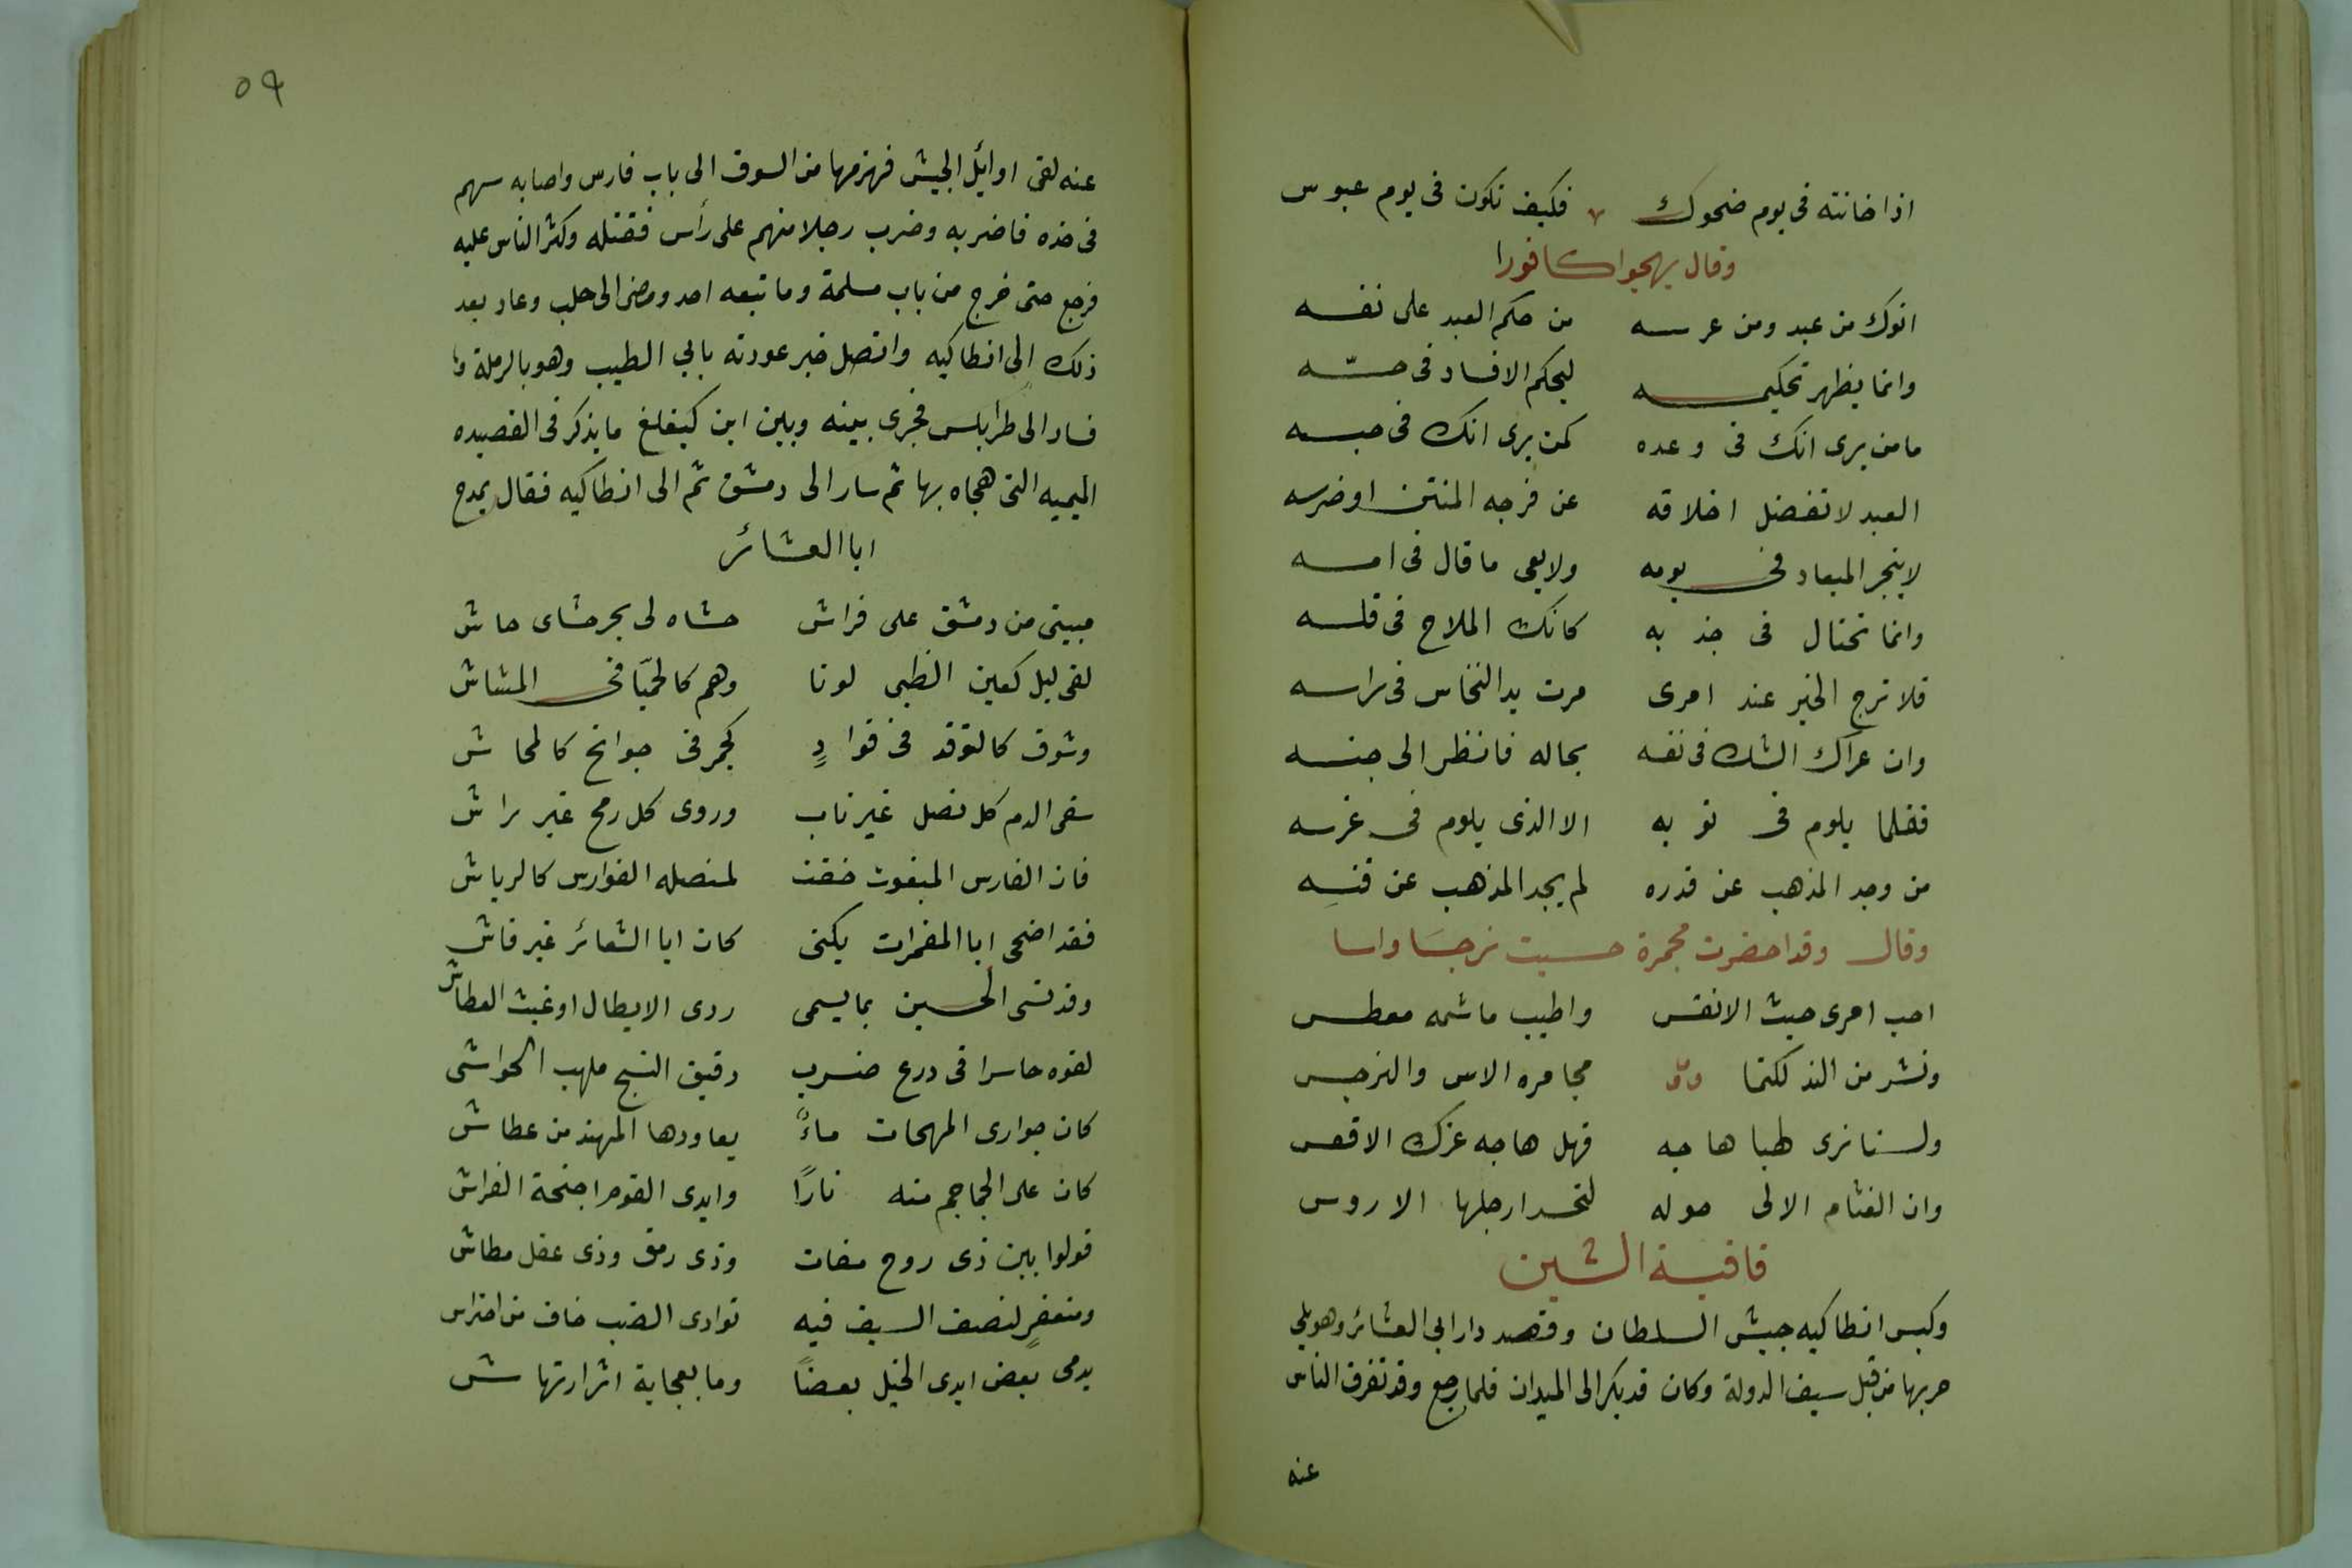 اذا خانته فى يوم ضحوك فكيف تكون فى يوم عبوس
وقال يهجوا كافورا
انوك من عبد ومن عرسه من حكم العبد على نفسه
وانما يظهر تحكيمه ليحكم الافساد فى حسّه
ما من يرى انك فى وعده كمن يرى انك فى حبسه
العبد لا تفضل اخلاقه عن فرجه المنتن اوضرسه
لا ينجز الميعاد فى يومه ولا يعى ما قال فى امسه
وانما تحتال فى جذبه كانك الملاح فى قلسه
فلا ترج الخير عند امرى مرت يد النخاس فى راسه
وان عراك الشك فى نفسه بحاله فانظر الى جنسه
فقلما يلوم فى ثوبه الا الذى يلوم فى غرسه
من وجد المذهب عن قدره لم يجد المذهب عن قنسه
وقال وقد احضرت مجمرة حسيت نرجسا واسا
احب امرى حبت الانفس واطيب ما شمه معطس
ونشر من الند لكنما مجامره الاس والنرجس
ولسنا نرى طبا هاجه فهل هاجه عزك الاقعس
وان الفئام الالى حوله لتحسد ارجلها الاروس
قافية الشين
وكبس انطاكيه جيش السلطان وقصد دار ابى العشائر وهو يلى
حربها من قبل سيف الدولة وكان قد بكر الى الميدان فلما رجع وقد تفرق الناس
عنه
٥٩
عنه لقى اوائل الجيش فهزمها من السوق الى باب فارس واصابه سهم
فى خده فاضربه وضرب رجلا منهم على رأس فقتله وكثر الناس عليه
فرجع حتى خرج من باب مسلمة وما تبعه احد ومضى الى حلب وعاد بعد
ذلك الى انطاكيه واتصل خبر عودته بابي الطيب وهو بالرملة
فسار الى طرابلس فجرى بينه وبين ابن كيغلغ ما يذكر فى القصيده
الميميه التى هجاه بها ثم سار الى دمشق ثم الى انطاكيه فقال يمدح
ابا العشائر
مبيتى من دمشق على فراش حشاه لى بحر حشاى حاش
لقى ليل كعين الظبى لونا وهم كالحميّا فى المشاش
وشوق كالتوقد فى فوادٍ كجمر فى جوانح كالمحاش
سقى الدم كل نصل غير ناب وروى كل رمح غير راش
فان الفارس المنعوت خفت لمنصله الفوارس كالرياش
فقد اضحى ابا الغمرات يكنى كان ابا الشعائر غير فاش
وقد نسى الحسين بما يسمى ردى الابطال او غيث العطاش
لقوه حاسرا فى درع ضرب دقيق النسج ملهب الحواشى
كان جوارى المهجات ماءً يعاودها المهند من عطاش
كان على الجماجم منه نارًا وايدى القوم اجنحة الفراش
فولوا بين ذى روح مفات وذى رمق وذى عقل مطاش
ومنعفرٍ لنصف السيف فيه توارى الضب خاف من احتراس
يدمى بعض ايدى الخيل بعضًا وما بعجاية اثر ارتهاش